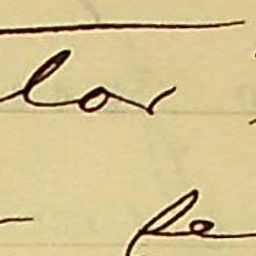 lor
fe